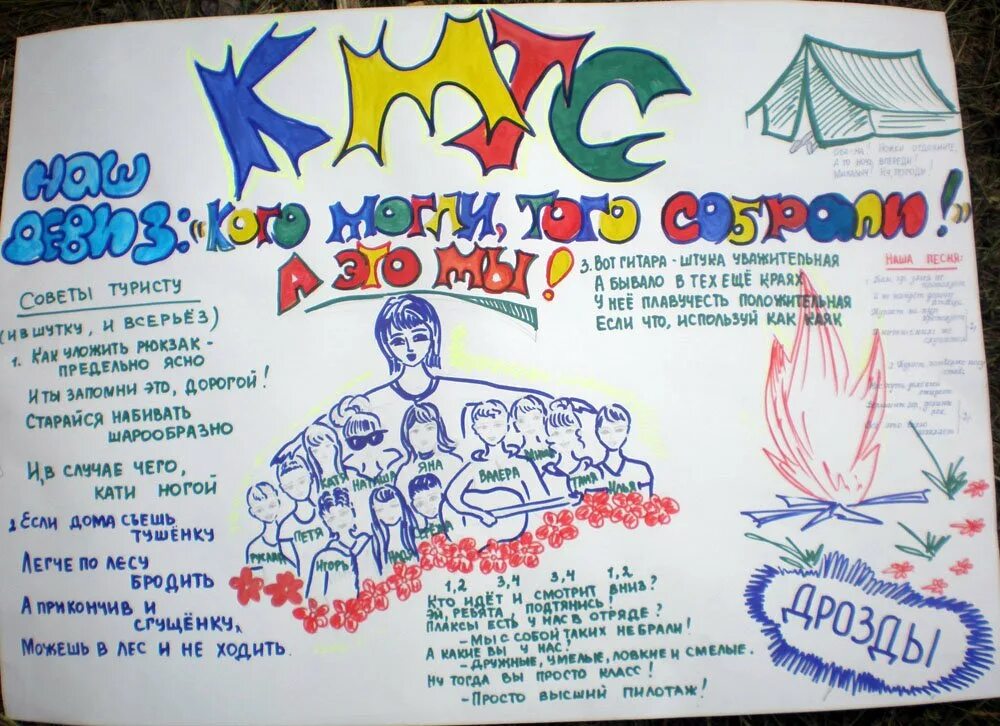 КМТС
НАШ
ДЕВИЗ: "КОГО МОГЛИ, ТОГО СОБРАЛИ!"
А ЭТО МЫ!
СОВЕТЫ ТУРИСТУ
(И В ШУТКУ, И ВСЕРЬЁЗ)
1. КАК УЛОЖИТЬ РЮКЗАК -
ПРЕДЕЛЬНО ЯСНО
И ТЫ ЗАПОМНИ ЭТО, ДОРОГОЙ!
СТАРАЙСЯ НАБИВАТЬ
ШАРООБРАЗНО
И, В СЛУЧАЕ ЧЕГО,
КАТИ НОГОЙ
2. ЕСЛИ ДОМА СЪЕШЬ
ТУШЁНКУ
ЛЕГЧЕ ПО ЛЕСУ
БРОДИТЬ
А ПРИКОНЧИВ И
СГУЩЁНКУ,
МОЖЕШЬ В ЛЕС И НЕ ХОДИТЬ.
3. ВОТ ГИТАРА - ШТУКА УВАЖИТЕЛЬНАЯ
А БЫВАЛО В ТЕХ ЕЩЁ КРАЯХ
У НЕЁ ПЛАВУЧЕСТЬ ПОЛОЖИТЕЛЬНАЯ
ЕСЛИ ЧТО, ИСПОЛЬЗУЙ КАК КАЯК
КАТЯ
НАТАША
ЯНА
ВАЛЕРА
МИША
ТАНЯ
ИЛЬЯ
РУСЛАН
ПЕТЯ
ИГОРЬ
СЕРЁЖА
1,2 3,4 3,4 1,2
КТО ИДЁТ И СМОТРИТ ВНИЗ?
ЭЙ, РЕБЯТА, ПОДТЯНИСЬ!
ПЛАКСЫ ЕСТЬ У НАС В ОТРЯДЕ?
- МЫ С СОБОЙ ТАКИХ НЕ БРАЛИ!
А КАКИЕ ВЫ У НАС?
- ДРУЖНЫЕ, УМЕЛЫЕ, ЛОВКИЕ И СМЕЛЫЕ.
НУ ТОГДА ВЫ ПРОСТО КЛАСС!
- ПРОСТО ВЫСШИЙ ПИЛОТАЖ!
НОЖКИ ОТДОХНИТЕ,
ВПЕРЕДИ!
НАША ПЕСНЯ:
ДРОЗДЫ